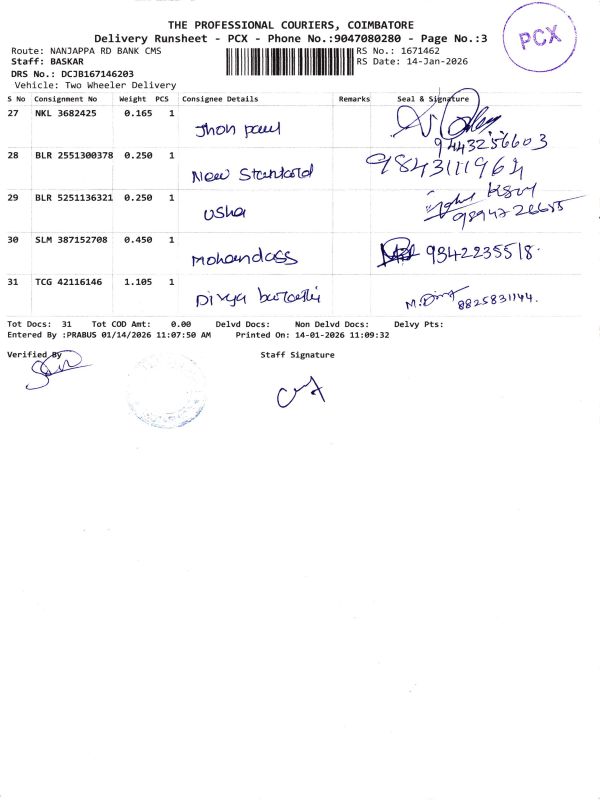 THE PROFESSIONAL COURIERS, COIMBATORE
Delivery Runsheet - PCX - Phone No.:9047080280 - Page No.:3
PCX
Route: NANJAPPA RD BANK CMS RS No.: 1671462
Staff: BASKAR RS Date: 14-Jan-2026
DRS No.: DCJB167146203
Vehicle: Two Wheeler Delivery
S No Consignment No Weight PCS Consignee Details Remarks Seal & Signature
27 NKL 3682425 0.165 1 Jhon paul 9443256603
28 BLR 2551300378 0.250 1 New Standard 9843111964
29 BLR 5251136321 0.250 1 Usha
30 SLM 387152708 0.450 1 Mohandass 9342235518.
31 TCG 42116146 1.105 1 Divya 8825831144.
Tot Docs: 31 Tot COD Amt: 0.00 Delvd Docs: Non Delvd Docs: Delvy Pts:
Entered By :PRABUS 01/14/2026 11:07:50 AM Printed On: 14-01-2026 11:09:32
Verified By Staff Signature